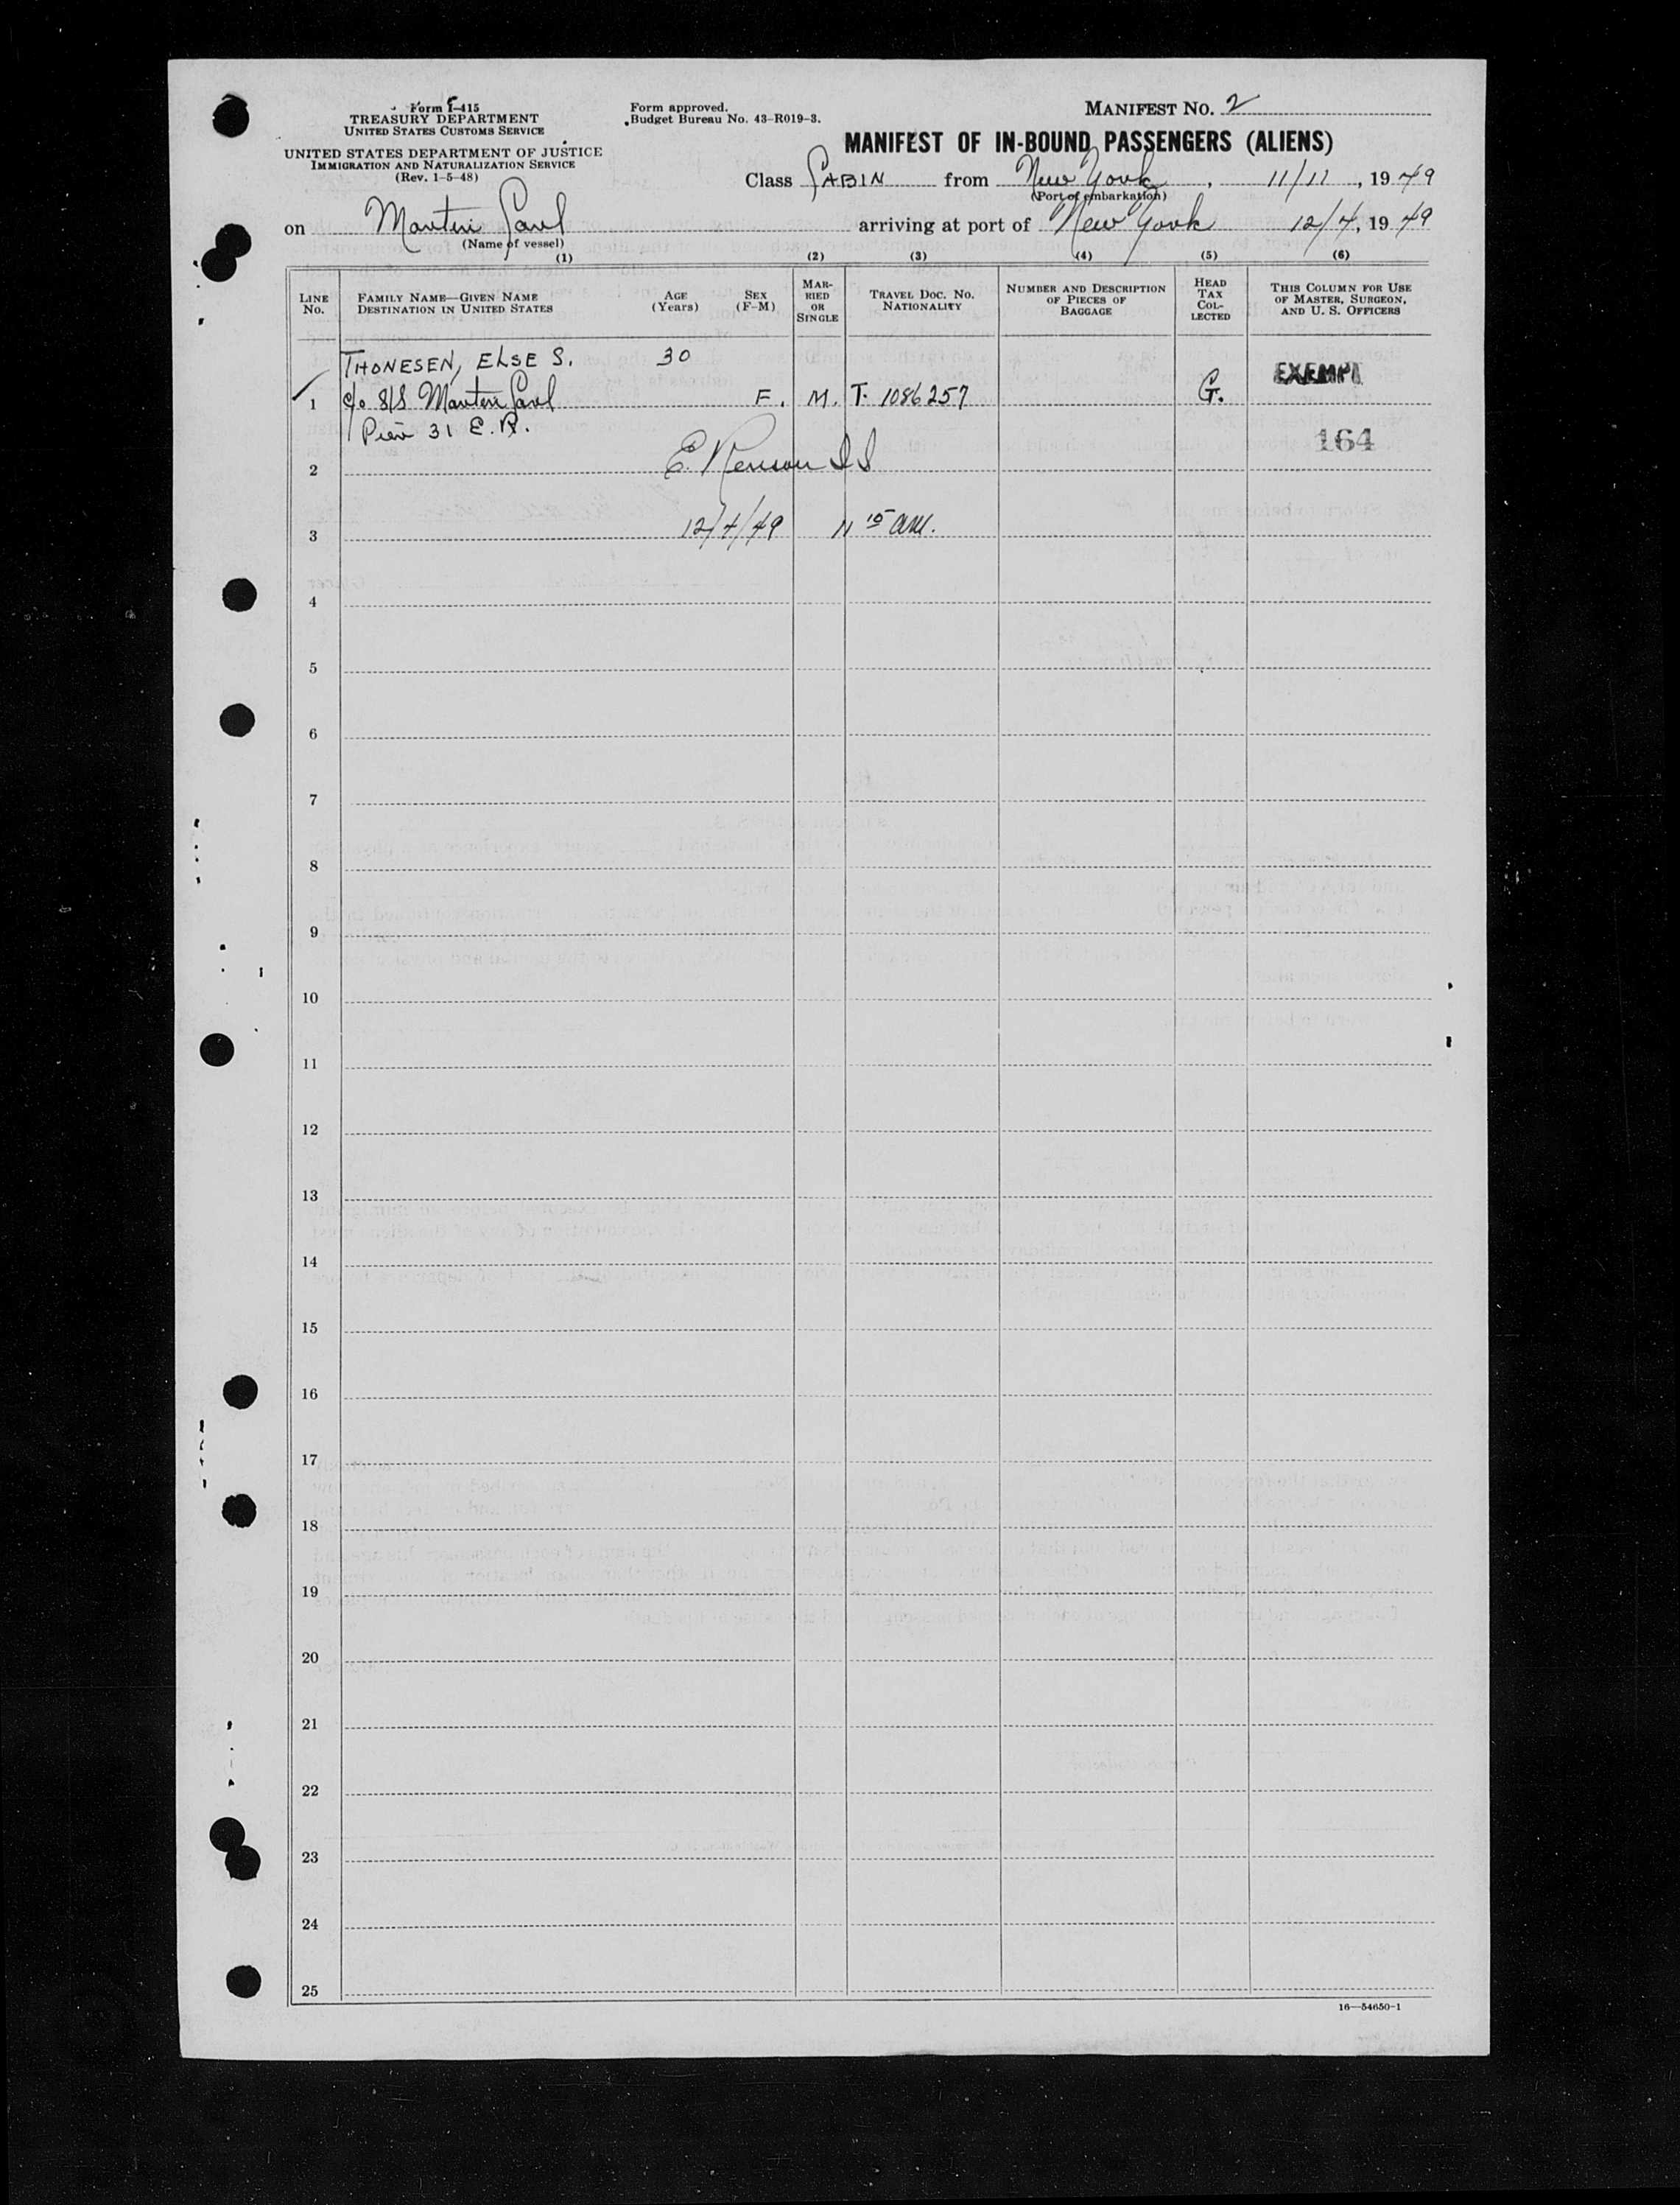 Form I-415
TREASURY DEPARTMENT
UNITED STATES CUSTOMS SERVICE
UNITED STATES DEPARTMENT OF JUSTICE
IMMIGRATION AND NATURALIZATION SERVICE
(Rev. 1-5-48)
Form approved.
Budget Bureau No. 43-R019-3.
MANIFEST NO. 2
MANIFEST OF IN-BOUND PASSENGERS (ALIENS)
Class CABIN from New York, 11/11, 1949
(Port of embarkation)
on Paul arriving at port of New York 12/4, 1949
(Name of vessel)
(1) (2) (3) (4) (5) (6)
LINE NO. FAMILY NAME—GIVEN NAME DESTINATION IN UNITED STATES AGE (Years) SEX (F-M) MARRIED OR SINGLE TRAVEL DOC. NO. NATIONALITY NUMBER AND DESCRIPTION OF PIECES OF BAGGAGE HEAD TAX COLLECTED THIS COLUMN FOR USE OF MASTER, SURGEON, AND U. S. OFFICERS
THONESEN, ELSE S. 30 EXEMPT
1 c/o S/S Paul F. M. T. 1086257 G.
Pier 31 E. R. 164
2 E.
3 12/4/49 15 am.
4
5
6
7
8
9
10
11
12
13
14
15
16
17
18
19
20
21
22
23
24
25
16—54650-1